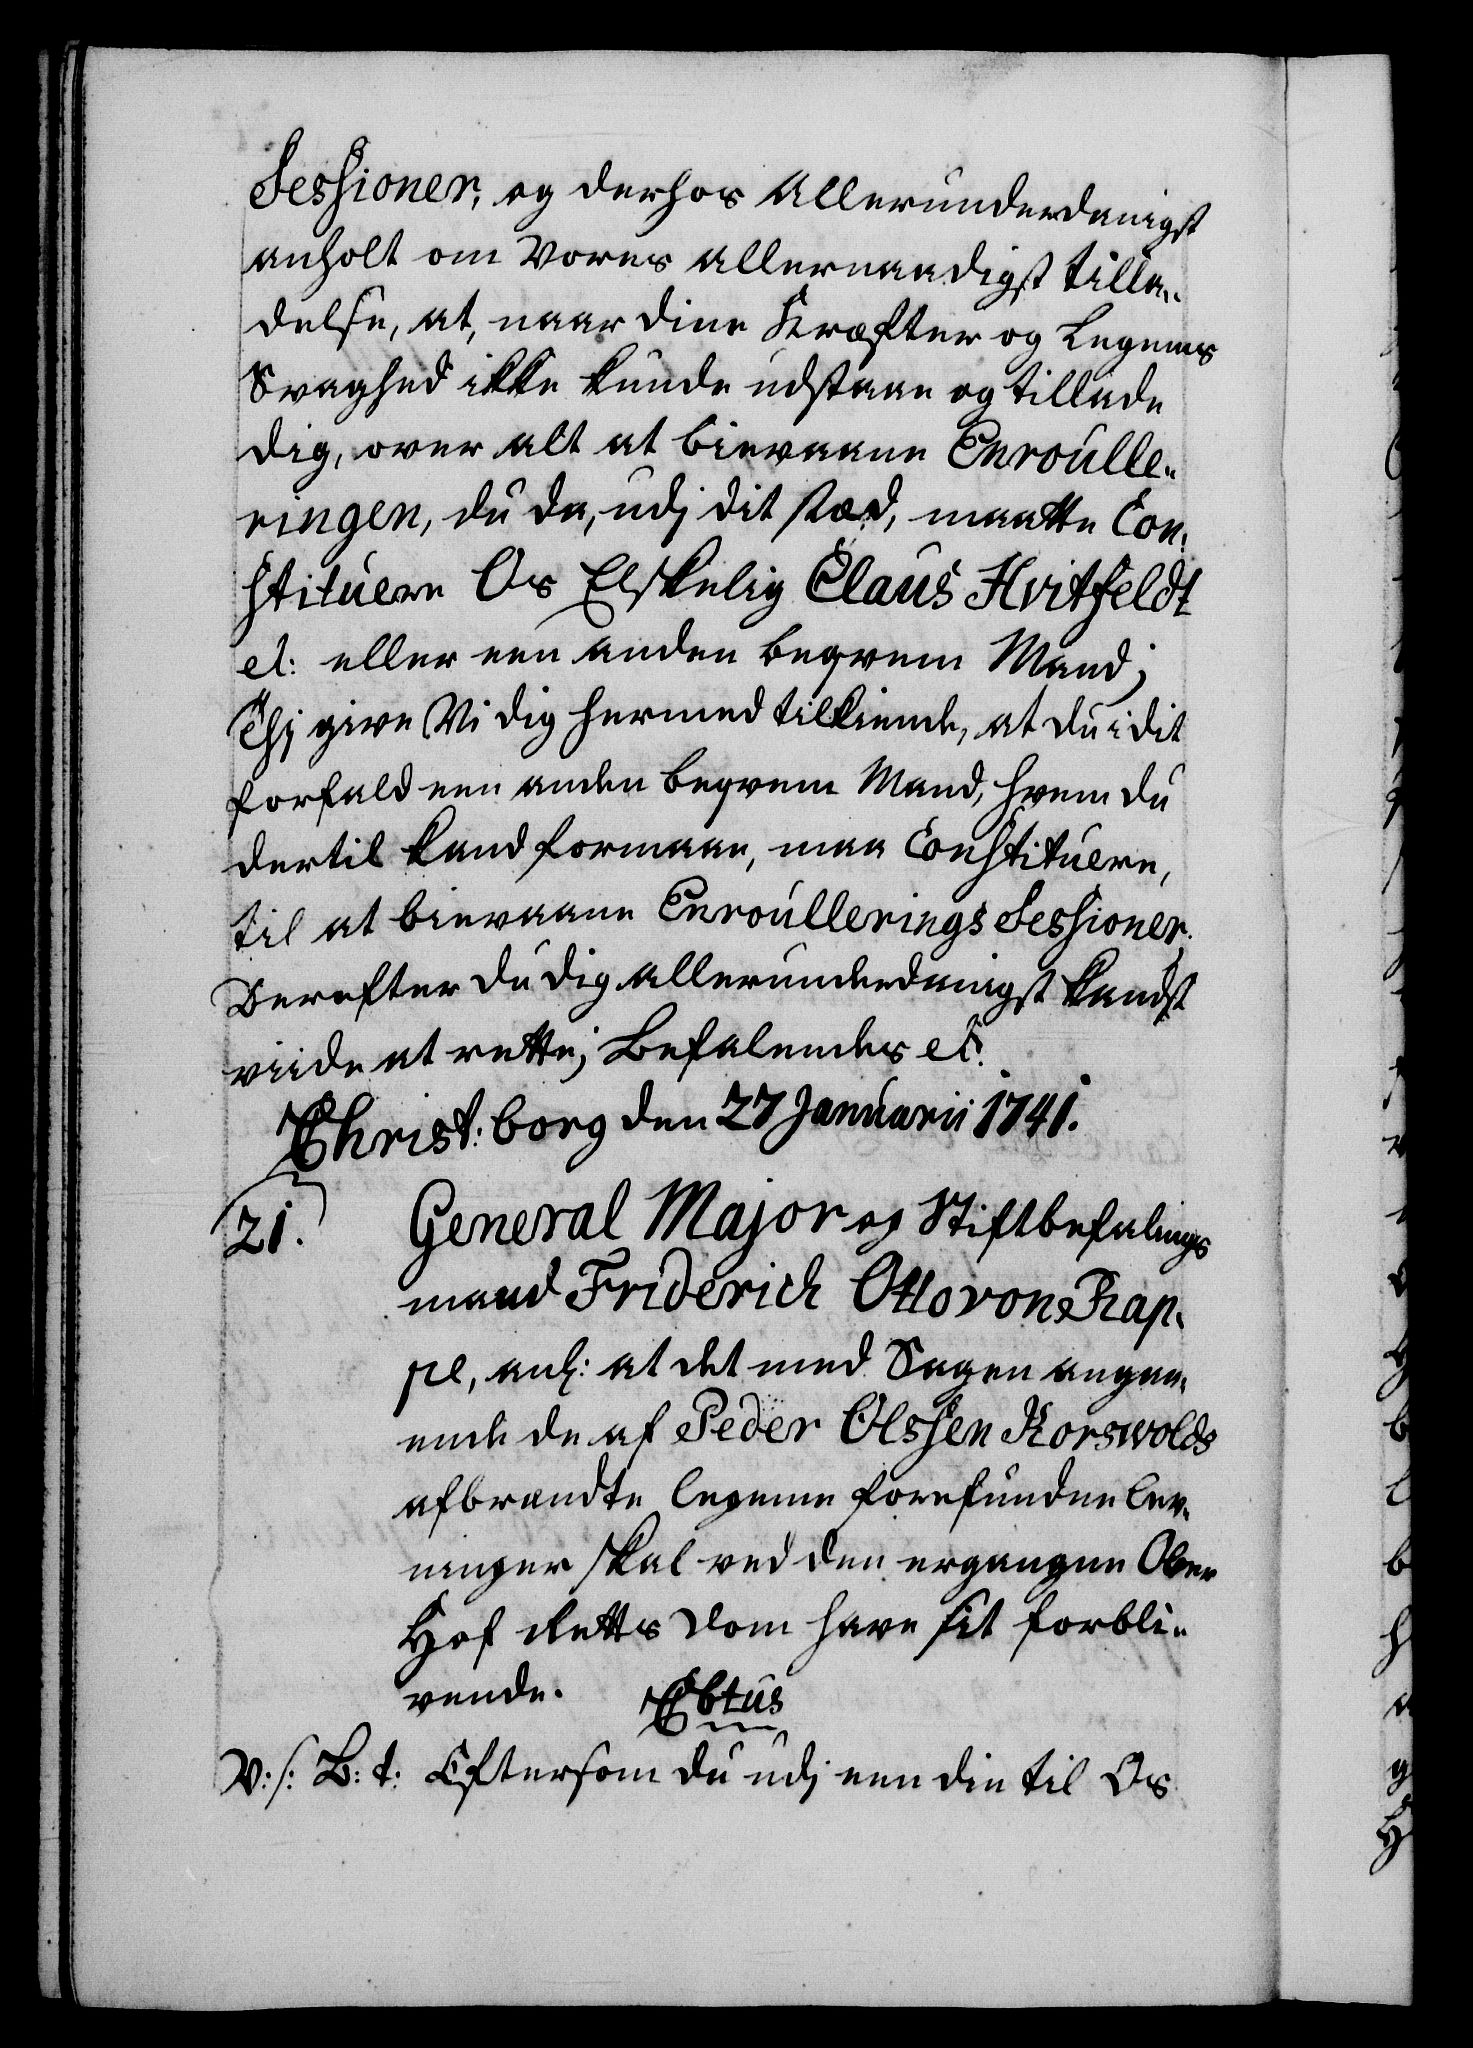 Sessioner, og derhos allerunderdanigst
anholt om Vores allernaadigst tilla-
delse, at, naar dine Kræfter og Legems
Svaghed ikke kunde udstaae og tillade
dig, over alt at bievaane Enroulle-
ringen, du da, udj dit stæd, maatte Con-
stituere Os Elskelig Claus Hvitfeldt
et: eller een anden beqvem Mand;
Thj give Vi dig hermed tilkiende, at du i dit
forfald een anden beqvem Mand, hvem du
dertil kand formaae, maa Constituere,
til at bievaane Enroullerings Sessioner.
Derefter du dig allerunderdanigst kandst
viide at rette; Befalendes et:
Christ: borg den 27 Januarii 1741.
21. General Major og Stiftbefalings
mand Friderich Otto von Rap-
pe, anl: at det med Sagen angaa-
ende de af Peder Olssen Korswolds
afbrandte legeme forefundne lev-
ninger skal ved den ergangne Ober
Hof Retts Dom have sit forbli-
vende. Ebtus
V: s: B: t: Eftersom du udj een din til Os